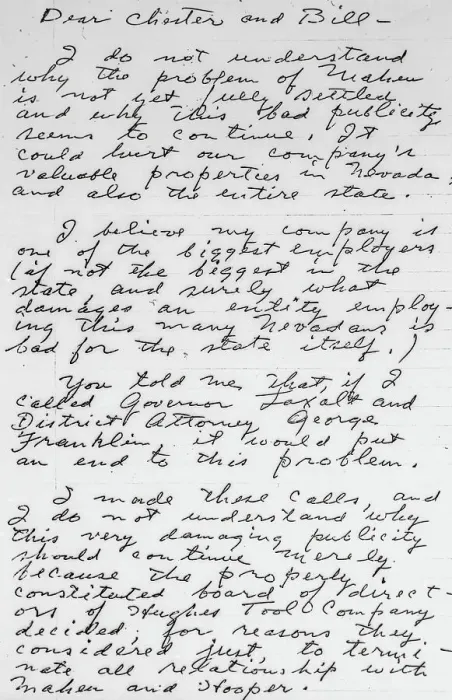 Dear Chester and Bill -
I do not understand
why the problem of Maheu
is not yet fully settled
and why this bad publicity
seems to continue. It
could hurt our company's
valuable properties in Nevada,
and also the entire state.
I believe my company is
one of the biggest employers
(if not the biggest in the
state and surely what
damages an entity employ-
ing this many Nevadans is
bad for the state itself.)
You told me that if I
called Governor Laxalt and
District Attorney George
Franklin, it would put
an end to this problem.
I made these calls, and
I do not understand why
this very damaging publicity
should continue merely
because the properly
constituted board of direct-
ors of Hughes Tool Company
decided, for reasons they
considered just, to termi-
nate all relationship with
Maheu and Hooper.